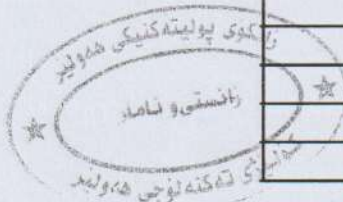 زانکوی پولیتەکنیکی هەولێر
زانستی و ئامار
کۆلیژی تەکنەلوجی هەولێر